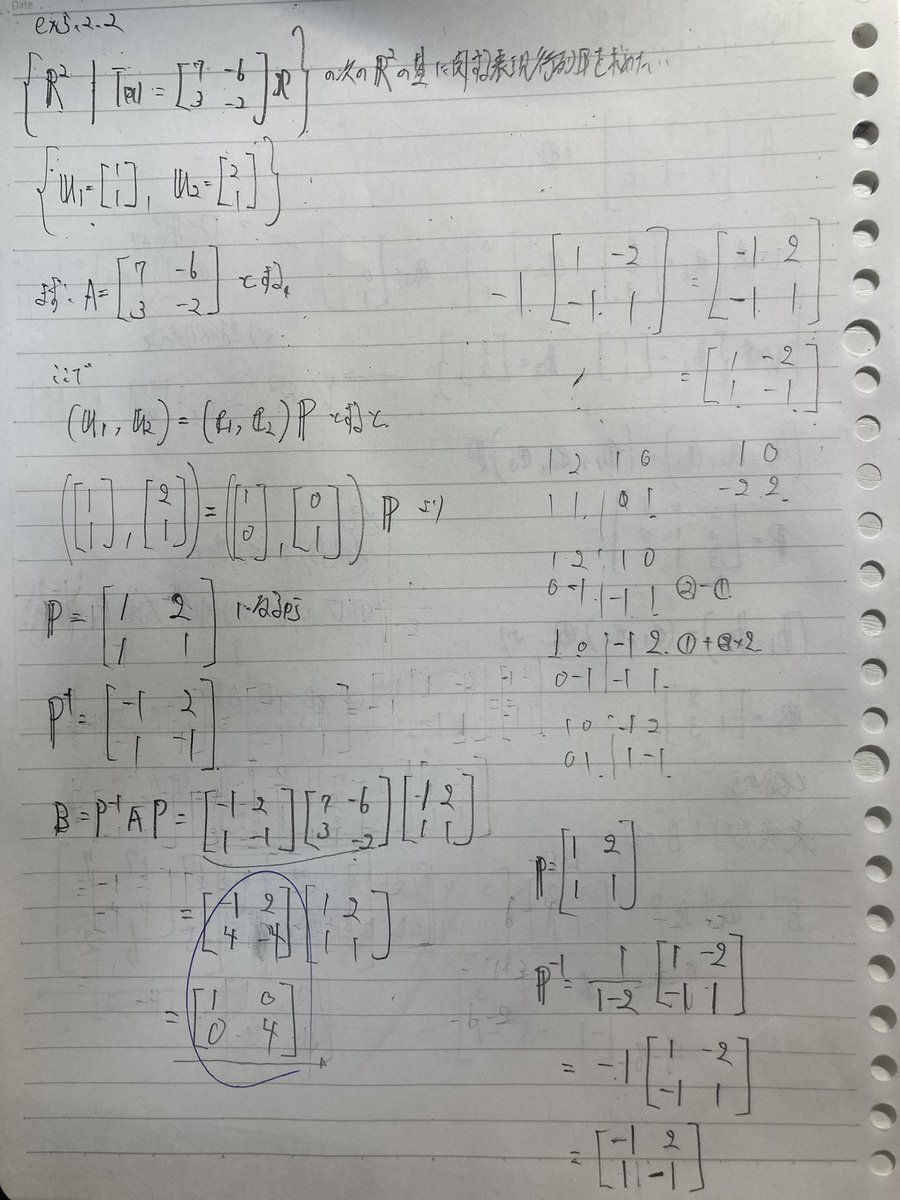 Date
ex3.2.2
{ℝ² | T(x) = [7 -6; 3 -2] x} の次の ℝ² の基に関する表現行列 B を求めたい
{u₁ = [1; 1], u₂ = [2; 1]}
A = [7 -6; 3 -2] とする。
ここで
(u₁, u₂) = (e₁, e₂) P とすると
([1; 1], [2; 1]) = ([1; 0], [0; 1]) P より
P = [1 2; 1 1] になるから
P⁻¹ = [-1 2; 1 -1]
B = P⁻¹ A P = [-1 2; 1 -1] [7 -6; 3 -2] [1 2; 1 1]
= [-1 2; 4 -4] [1 2; 1 1]
= [1 0; 0 4]
-1 · [1 -2; -1 1] = [-1 2; -1 1]
= [1 -2; 1 -1]
1 2 | 1 0
1 1 | 0 1
1 0
-2 2
1 2 | 1 0
0 -1 | -1 1 ②-①
1 0 | -1 2 ①+②×2
0 -1 | -1 1
1 0 | -1 2
0 1 | 1 -1
P = [1 2; 1 1]
P⁻¹ = 1/(1-2) [1 -2; -1 1]
= -1 [1 -2; -1 1]
= [-1 2; 1 -1]